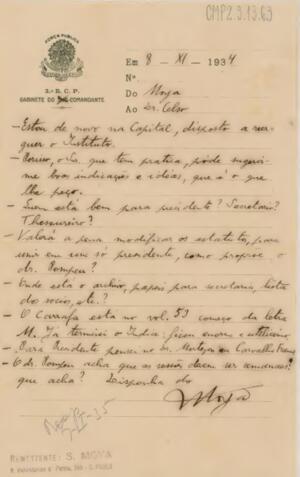 CMP2.3.13.63
FORÇA PUBLICA
2.º B. C. P.
GABINETE DO COMANDANTE
Em 8 - XI - 1934
N.º
Do Moya
Ao Dr. Celso
— Estou de novo na Capital, disposto a
guer o Instituto.
que tem pratica, póde
boas indicações e idéias, que é o que
lhe peço.
— Quem está bem para presidente? Secretario?
Thesoureiro?
— Valerá a pena modificar os estatutos, para
unir em um só presidente, como propõe o
dr. Pompeu?
— Onde está o archivo, papeis para secretaria, lista
de socios, etc.?
— O Carrafa está no vol. 53 começo da letra
M. Já terminei o Indice: ficou enorme
— Para Presidente pensei no Dr. ou Carvalho Franco
— O dr. Pompeu acha que as sessões devem ser semanaes.
que acha? Disponha do
Moya
REMETTENTE: S. MOYA
S. PAULO